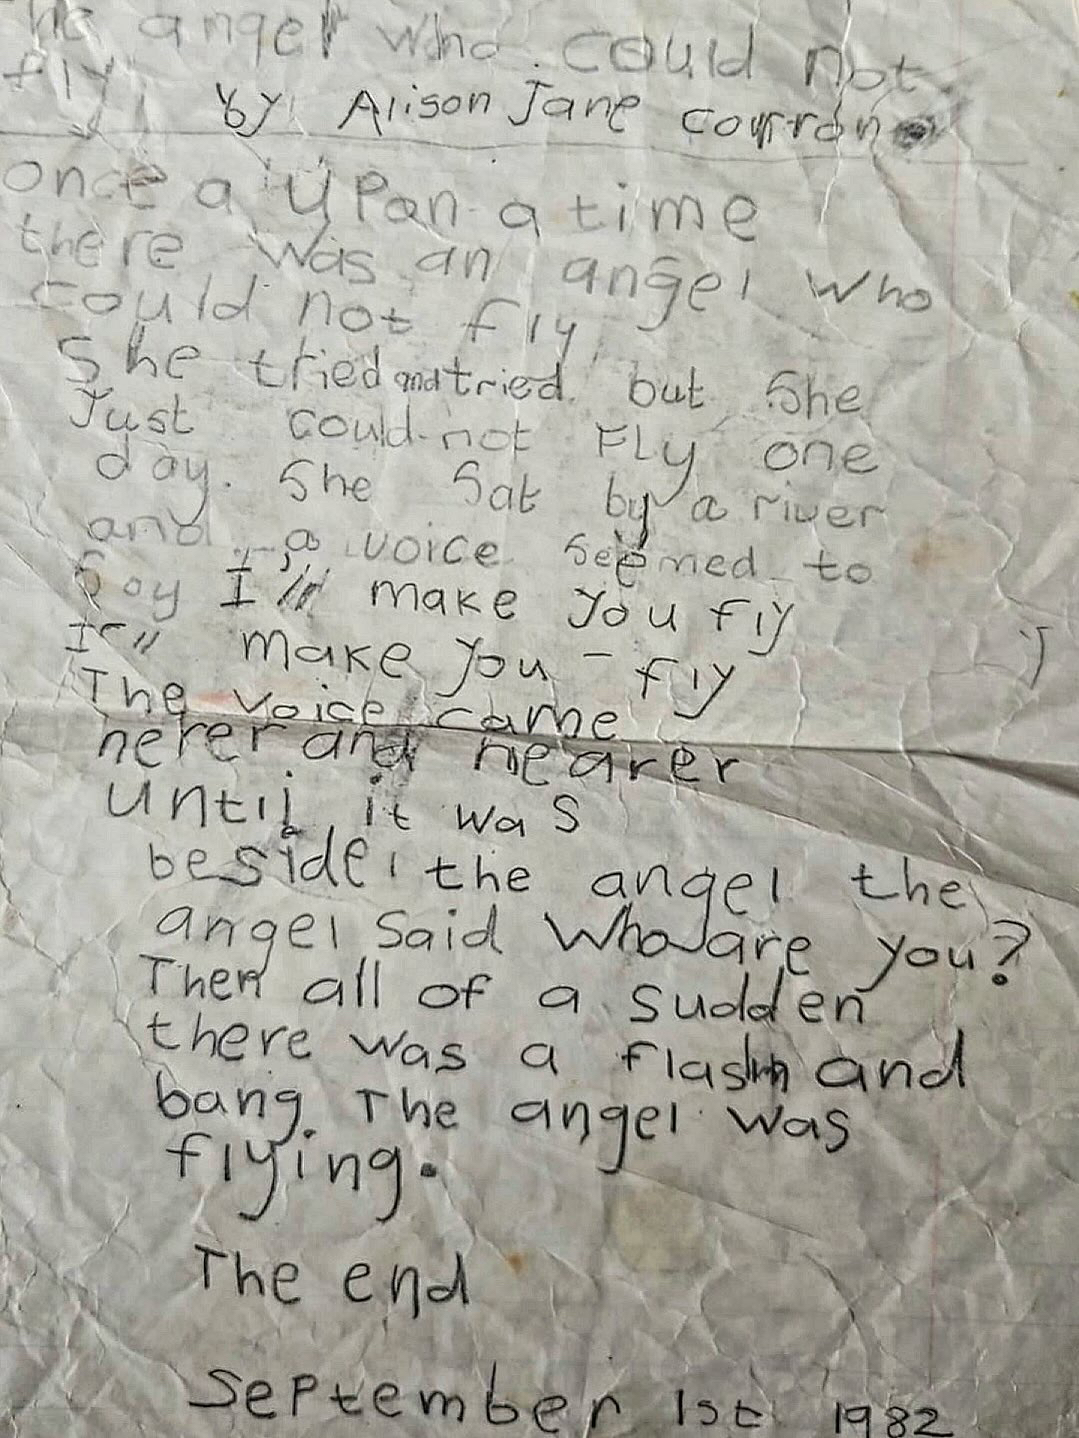 The angel who could not
fly
by Alison Jane Corran
once a upon a time
there was an angel who
could not fly
She tried and tried but She
Just could not FLy one
day. She Sat by a river
and a voice Seemed to
Say I'll make you fly
I'll make you - fly
The voice came
nerer and nearer
until it was
beside the angel the
angel Said Who are you?
Then all of a sudden
there was a flash and
bang. The angel was
flying.
The end
September 1st 1982